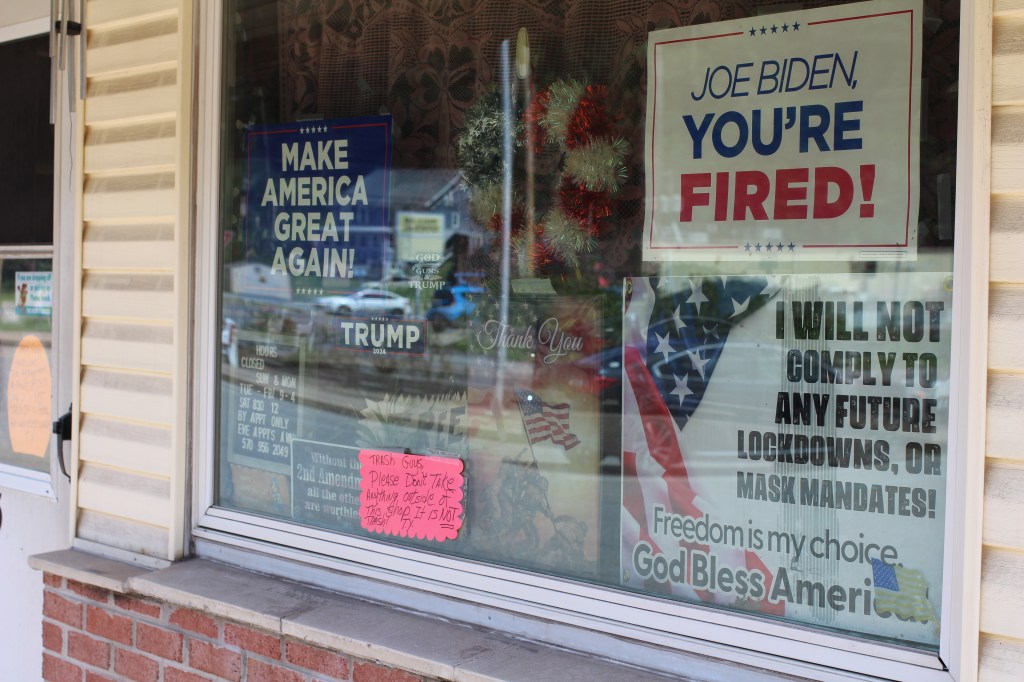 MAKE
AMERICA
GREAT
AGAIN!
GOD
GUNS &
TRUMP
TRUMP
2024
Thank You
HOURS
CLOSED
SUN & MON
TUE - FRI 9-4
SAT 830 12
BY APPT ONLY
EVE APPTS AVA
570 956 2049
Without th
2nd Amendm
all the othe
are worthle
TRASH GUYS
PLEASE DON'T TAKE
ANYTHING OUTSIDE OF
THIS SHOP. IT IS NOT
TRASH! TY
JOE BIDEN,
YOU'RE
FIRED!
I WILL NOT
COMPLY TO
ANY FUTURE
LOCKDOWNS, OR
MASK MANDATES!
Freedom is my choice.
God Bless Ameri